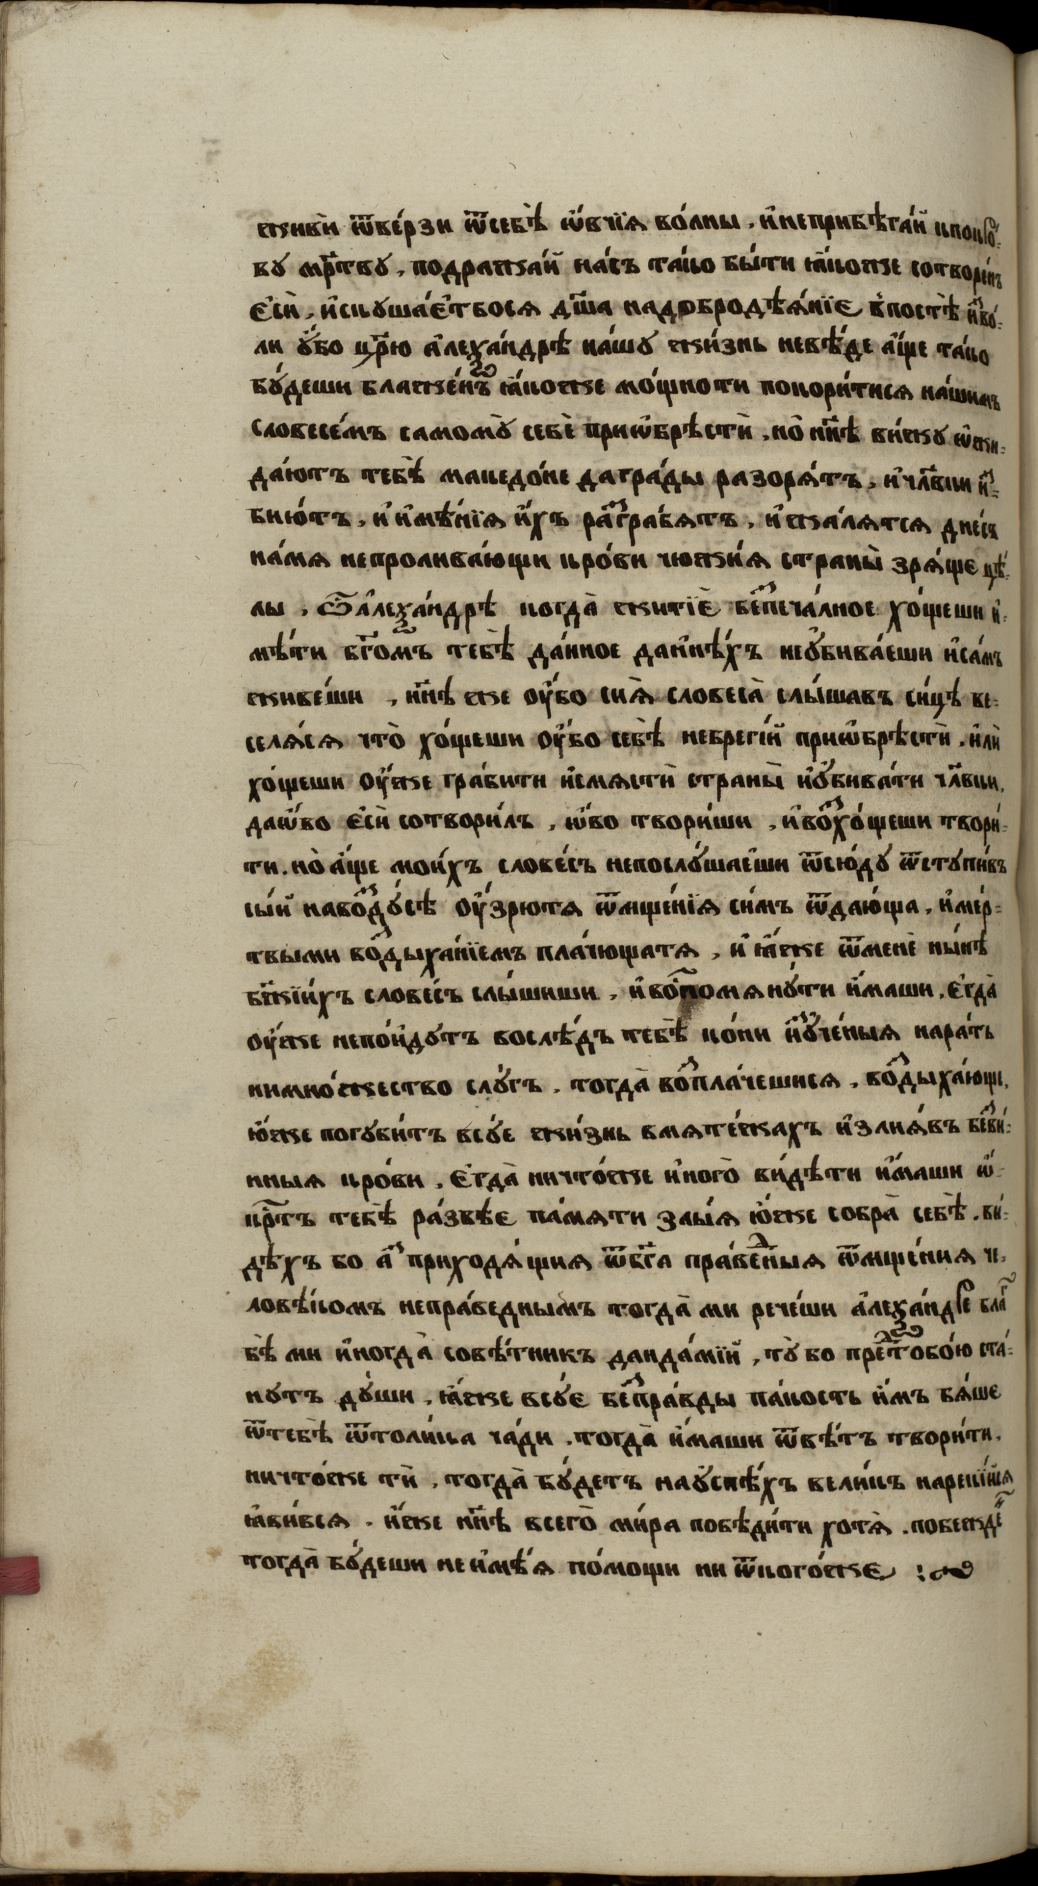 живи̏ ѿве́рзи ѿсебѣ̀ ѻ҆́вчїѧ во́лны . и҆неприбѣга́й кпокрⷪ-
ву мр҃тву . подража́й на́съ та́ко бы́ти ꙗ҆́коже сотворе́нъ
є҆сѝ . и҆скуша́етбосѧ дш҃а надобродѣѧ́нїе в̾постѣ̀ и҆во́-
ли у҆́бо цр҃ю а҆леѯа́ндрѣ на́шу жи́знь невѣ́де а҆́ще та́ко
бу́деши блаже́нъ ꙗ҆́коже мо́щноти покори́тисѧ на́шимъ
словесе́мъ самому̀ себѐ приѡ҆брѣстѝ . но̀ нн҃ѣ ви́жу ѡ҆жи-
да́ютъ тебѣ̀ македо́не дагра́ды разорѧ́тъ . и҆члв҃ки и҆ꙁ-
бию́тъ . и҆ и҆мѣ́нїѧ и҆́хъ раꙁгра́бѧтъ . и҆ жа́лѧтсѧ дне́сь
на́мѧ непролива́ющи кро́ви чюжи́ѧ страны̀ зрѧ́ще цѣ́-
лы . Ѽа҆леѯа́ндрѣ когда̀ житїѐ беꙁпеча́лное хо́щеши и҆-
мѣ́ти бг҃омъ тебѣ̀ да́нное даи҆нѣ́хъ неу҆бива́еши и҆са́мъ
живе́ши , нн҃ѣ же ѹ҆́бо сиѧ̀ словеса̀ слы́шавъ си́цѣ ве-
селѧ́сѧ что̀ хо́щеши ѹ҆́бо себѣ̀ небреѓїй приѡ҆брѣстѝ . и҆лѝ
хо́щеши ѹ҆́же гра́бити и҆смѧстѝ страны̀ и҆у҆бива́ти члв҃ки,
даѡ҆́во є҆сѝ сотвори́лъ , ѡ҆́во твори́ши , и҆воꙁхо́щеши твори́-
ти . но̀ а҆́ще мои́хъ слове́съ непослу́шаеши ѿсю́ду ѿступи́въ
сы́й навоꙁду́сѣ ѹ҆́зрютѧ ѿмще́нїѧ си́мъ ѿдаю́ща , и҆ме́р-
твыми воꙁдыха́нїемъ пла́чющатѧ , и҆ ꙗ҆́же ѿменѐ ны́нѣ
бж҃їи́хъ слове́съ слы́шиши . и҆воꙁпомѧну́ти и҆́маши , є҆гда̀
ѹ҆́же непо́йдутъ восле́дъ тебѣ̀ ко́ни и҆ꙁуче́ныѧ нара́ть
нимно́жество слу́гъ . тогда̀ воꙁпла́чешисѧ . воꙁдыха́ющи,
ю҆́же погуби́тъ всу́е жи́знь вмѧте́жахъ и҆злиѧ́въ беꙁви́-
нныѧ кро́ви , є҆гда̀ ничто́же и҆ного̀ ви́дѣти и҆́маши ѡ҆-
крⷭ҇тъ тебѣ̀ ра́звѣе па́мѧти злы́ѧ ю҆́же собра̀ себѣ̀ . ви́-
дѣхъ бо аꙁ приходѧ́щиѧ ѿбг҃а пра́веⷣныѧ ѿмще́ниѧ че-
ловѣ́комъ непра́веднымъ тогда̀ ми рече́ши а҆леѯа́ндре блаⷢ҇
бѣ̀ ми и҆ногда̀ совѣ́тникъ данда́мїй , ту̀ бо преⷣтобо́ю ста́-
нутъ ду́ши . ꙗ҆́же всу́е беꙁпра́вды па́кость и҆́мъ бѧ́ше
ѿтебѣ̀ ѿтоли́ка ча́ди . тогда̀ и҆́маши ѿвѣ́тъ твори́ти .
ничто́же тѝ , тогда̀ бу́детъ нау҆спѣ́хъ вели́къ наре́кїйсѧ
ꙗ҆ви́всѧ . и҆́же нн҃ѣ всего̀ ми́ра побѣди́ти хотѧ̀ . побежде́ⷩ
тогда̀ бу́деши не и҆мѣ́ѧ по́мощи ни ѿкого́же :~